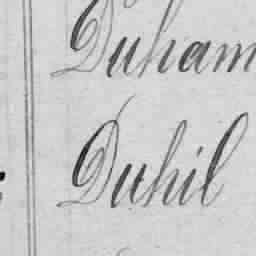 Duham
Duhil